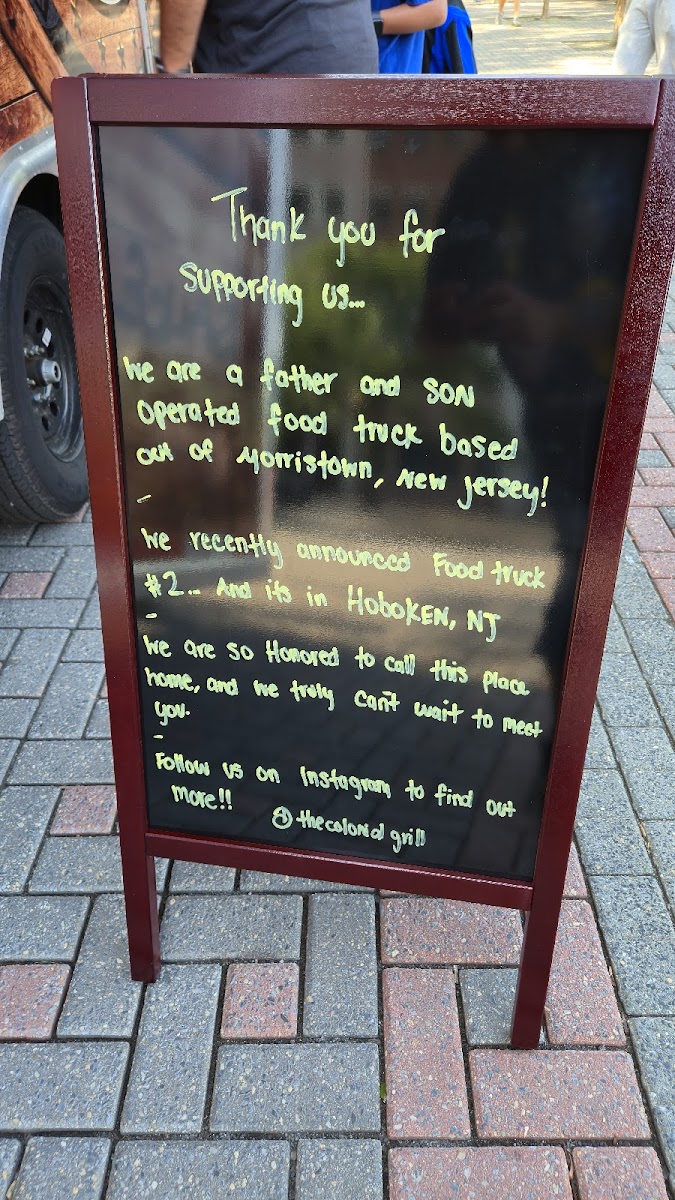 Thank you for
supporting us...
We are a father and son
operated food truck based
out of Morristown, New Jersey!
-
We recently announced Food truck
#2... And its in Hoboken, NJ
-
We are so Honored to call this place
home, and we truly can't wait to meet
you.
-
Follow us on Instagram to find out
more!!
@thecolonialgrill